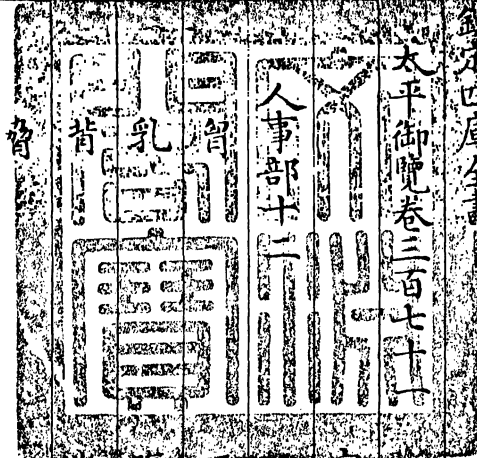 欽定四庫全書
太平御覽卷三百七十一
人事部十二
胷
乳
背
脅
文淵閣寶